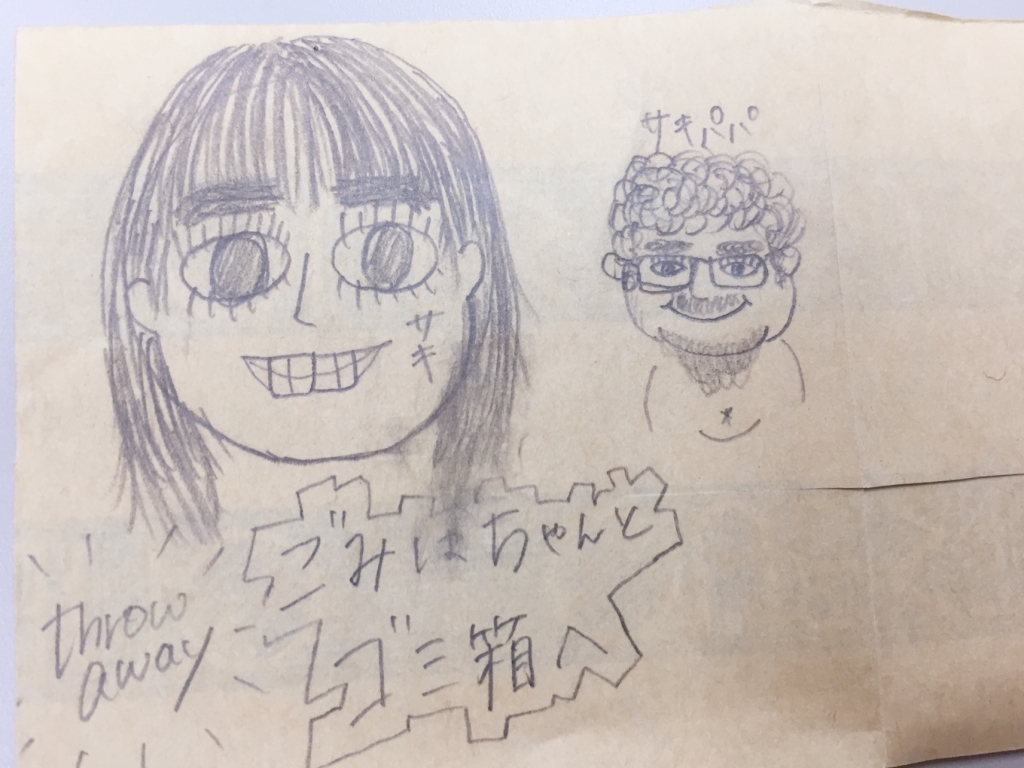 サキパパ
サキ
ごみはちゃんと
ゴミ箱へ
throw
away